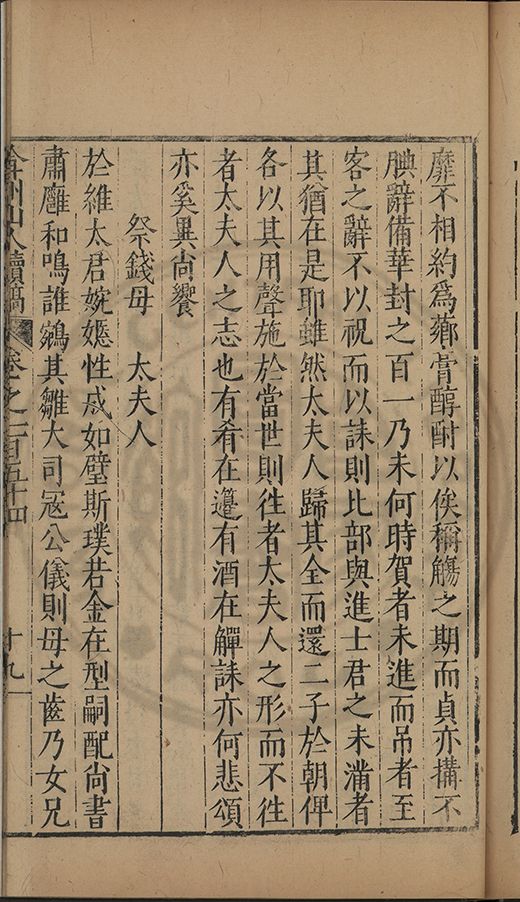 靡不相約為薌膏醇酎以俟稱觴之期而貞亦搆不
腆辭備華封之百一乃未何時賀者未進而吊者至
客之辭不以祝而以誄則比部與進士君之未滿者
其猶在是耶雖然太夫人歸其全而還二子於朝俾
各以其用聲施於當世則徃者太夫人之形而不徃
者太夫人之志也有肴在籩有酒在觶誄亦何悲頌
亦奚異尚饗
祭錢母 太夫人
於維太君婉嫕性成如璧斯璞若金在型嗣配尚書
肅雝和鳴誰鵷其雛大司寇公儀則母之齒乃女兄
弇州山人續稿 卷之一百五十四 十九